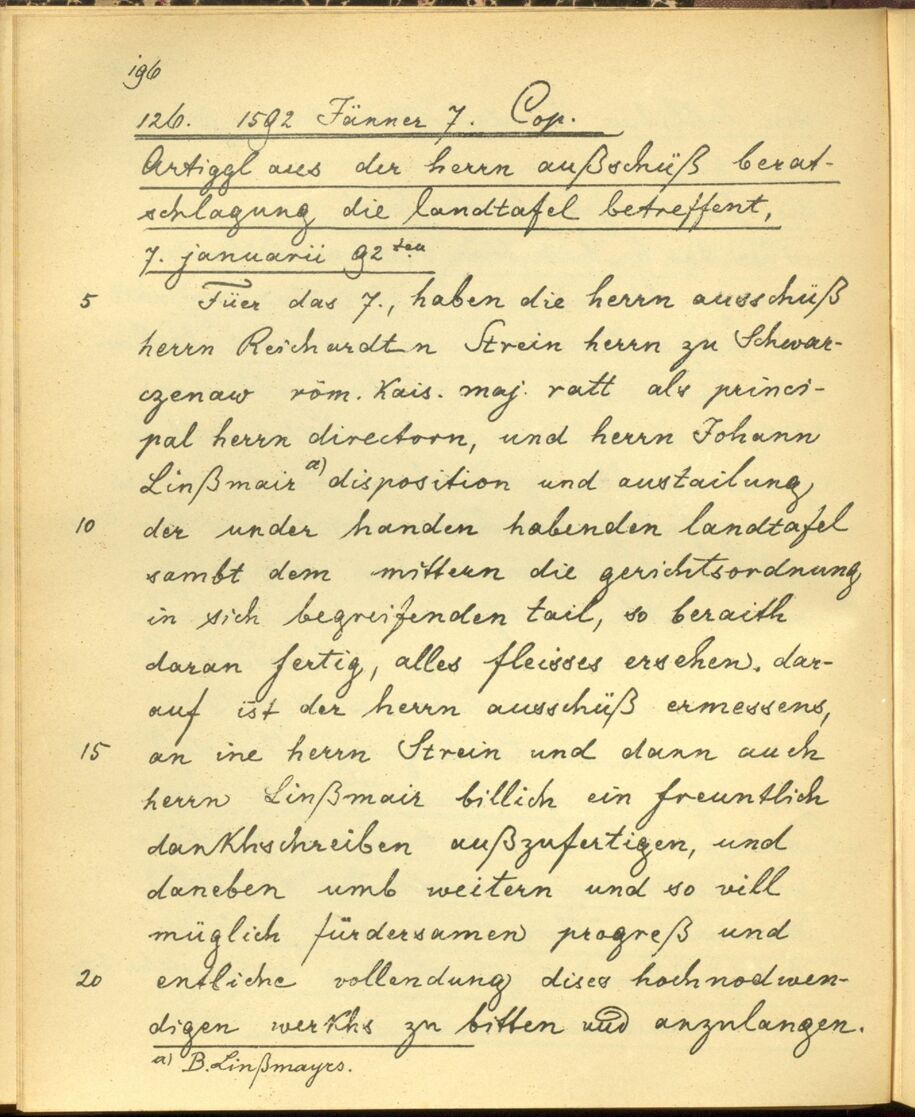 196
126. 1592 Jänner 7. Cop.
Artiggl aus der herrn außschüß berat-
schlagung die landtafel betreffent,
7. januarii 92ten
5 Füer das 7., haben die herrn ausschüß
herrn Reichardten Strein herrn zu Schwar-
czenaw röm. Kais. maj. ratt als princi-
pal herrn directorn, und herrn Johann
Linßmair a) disposition und austailung
10 der under handen habenden landtafel
sambt dem mittern die gerichtsordnung
in sich begreifenden tail, so beraith
daran fertig, alles fleisses ersehen. dar-
auf ist der herrn ausschüß ermessens,
15 an ine herrn Strein und dann auch
herrn Linßmair billich ein freuntlich
dankhschreiben außzufertigen, und
daneben umb weitern und so vill
müglich fürdersamen progreß und
20 entliche vollendung dises hochnodwen-
digen werkhs zu bitten und anzulangen.
a) B. Linßmayrs.